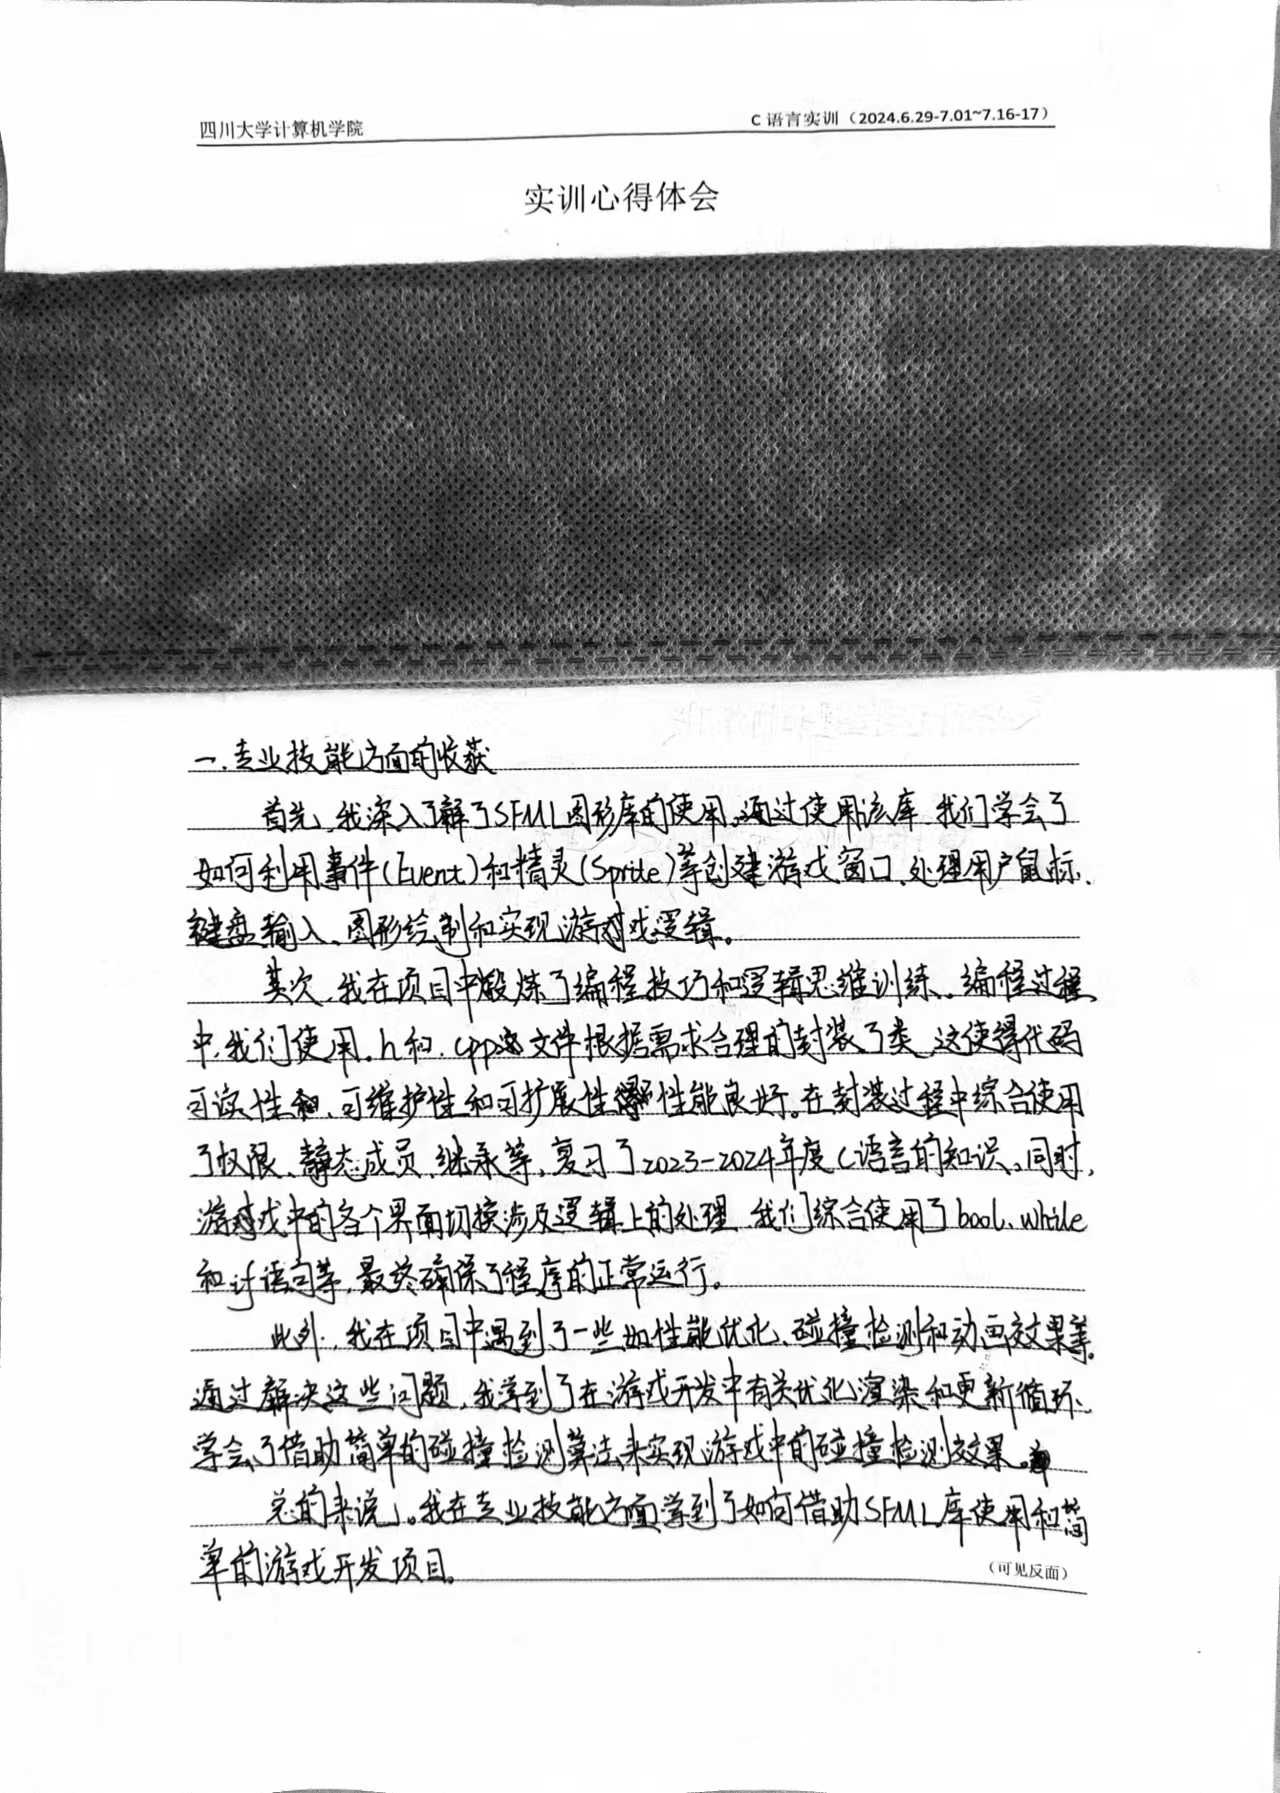 四川大学计算机学院
C 语言实训（2024.6.29-7.01~7.16-17）
实训心得体会
一、专业技能方面的收获
首先，我深入了解了SFML图形库的使用。通过使用该库，我们学会了
如何利用事件(Event)和精灵(Sprite)等创建游戏窗口、处理用户鼠标、
键盘输入、图形绘制和实现游戏逻辑。
其次，我在项目中锻炼了编程技巧和逻辑思维训练。编程过程
中，我们使用.h和.cpp文件根据需求合理的封装了类，这使得代码
可读性、可维护性和可扩展性性能良好。在封装过程中综合使用
了权限、静态成员、继承等，复习了2023-2024年度C语言的知识。同时，
游戏中的各个界面切换涉及逻辑上的处理，我们综合使用了bool、while
和if语句等，最终确保了程序的正常运行。
此外，我在项目中遇到了一些如性能优化、碰撞检测和动画效果等。
通过解决这些问题，我学到了在游戏开发中有关优化渲染和更新循环、
学会了借助简单的碰撞检测算法来实现游戏中的碰撞检测效果。
总的来说，我在专业技能方面学到了如何借助SFML库使用和简
单的游戏开发项目。
（可见反面）